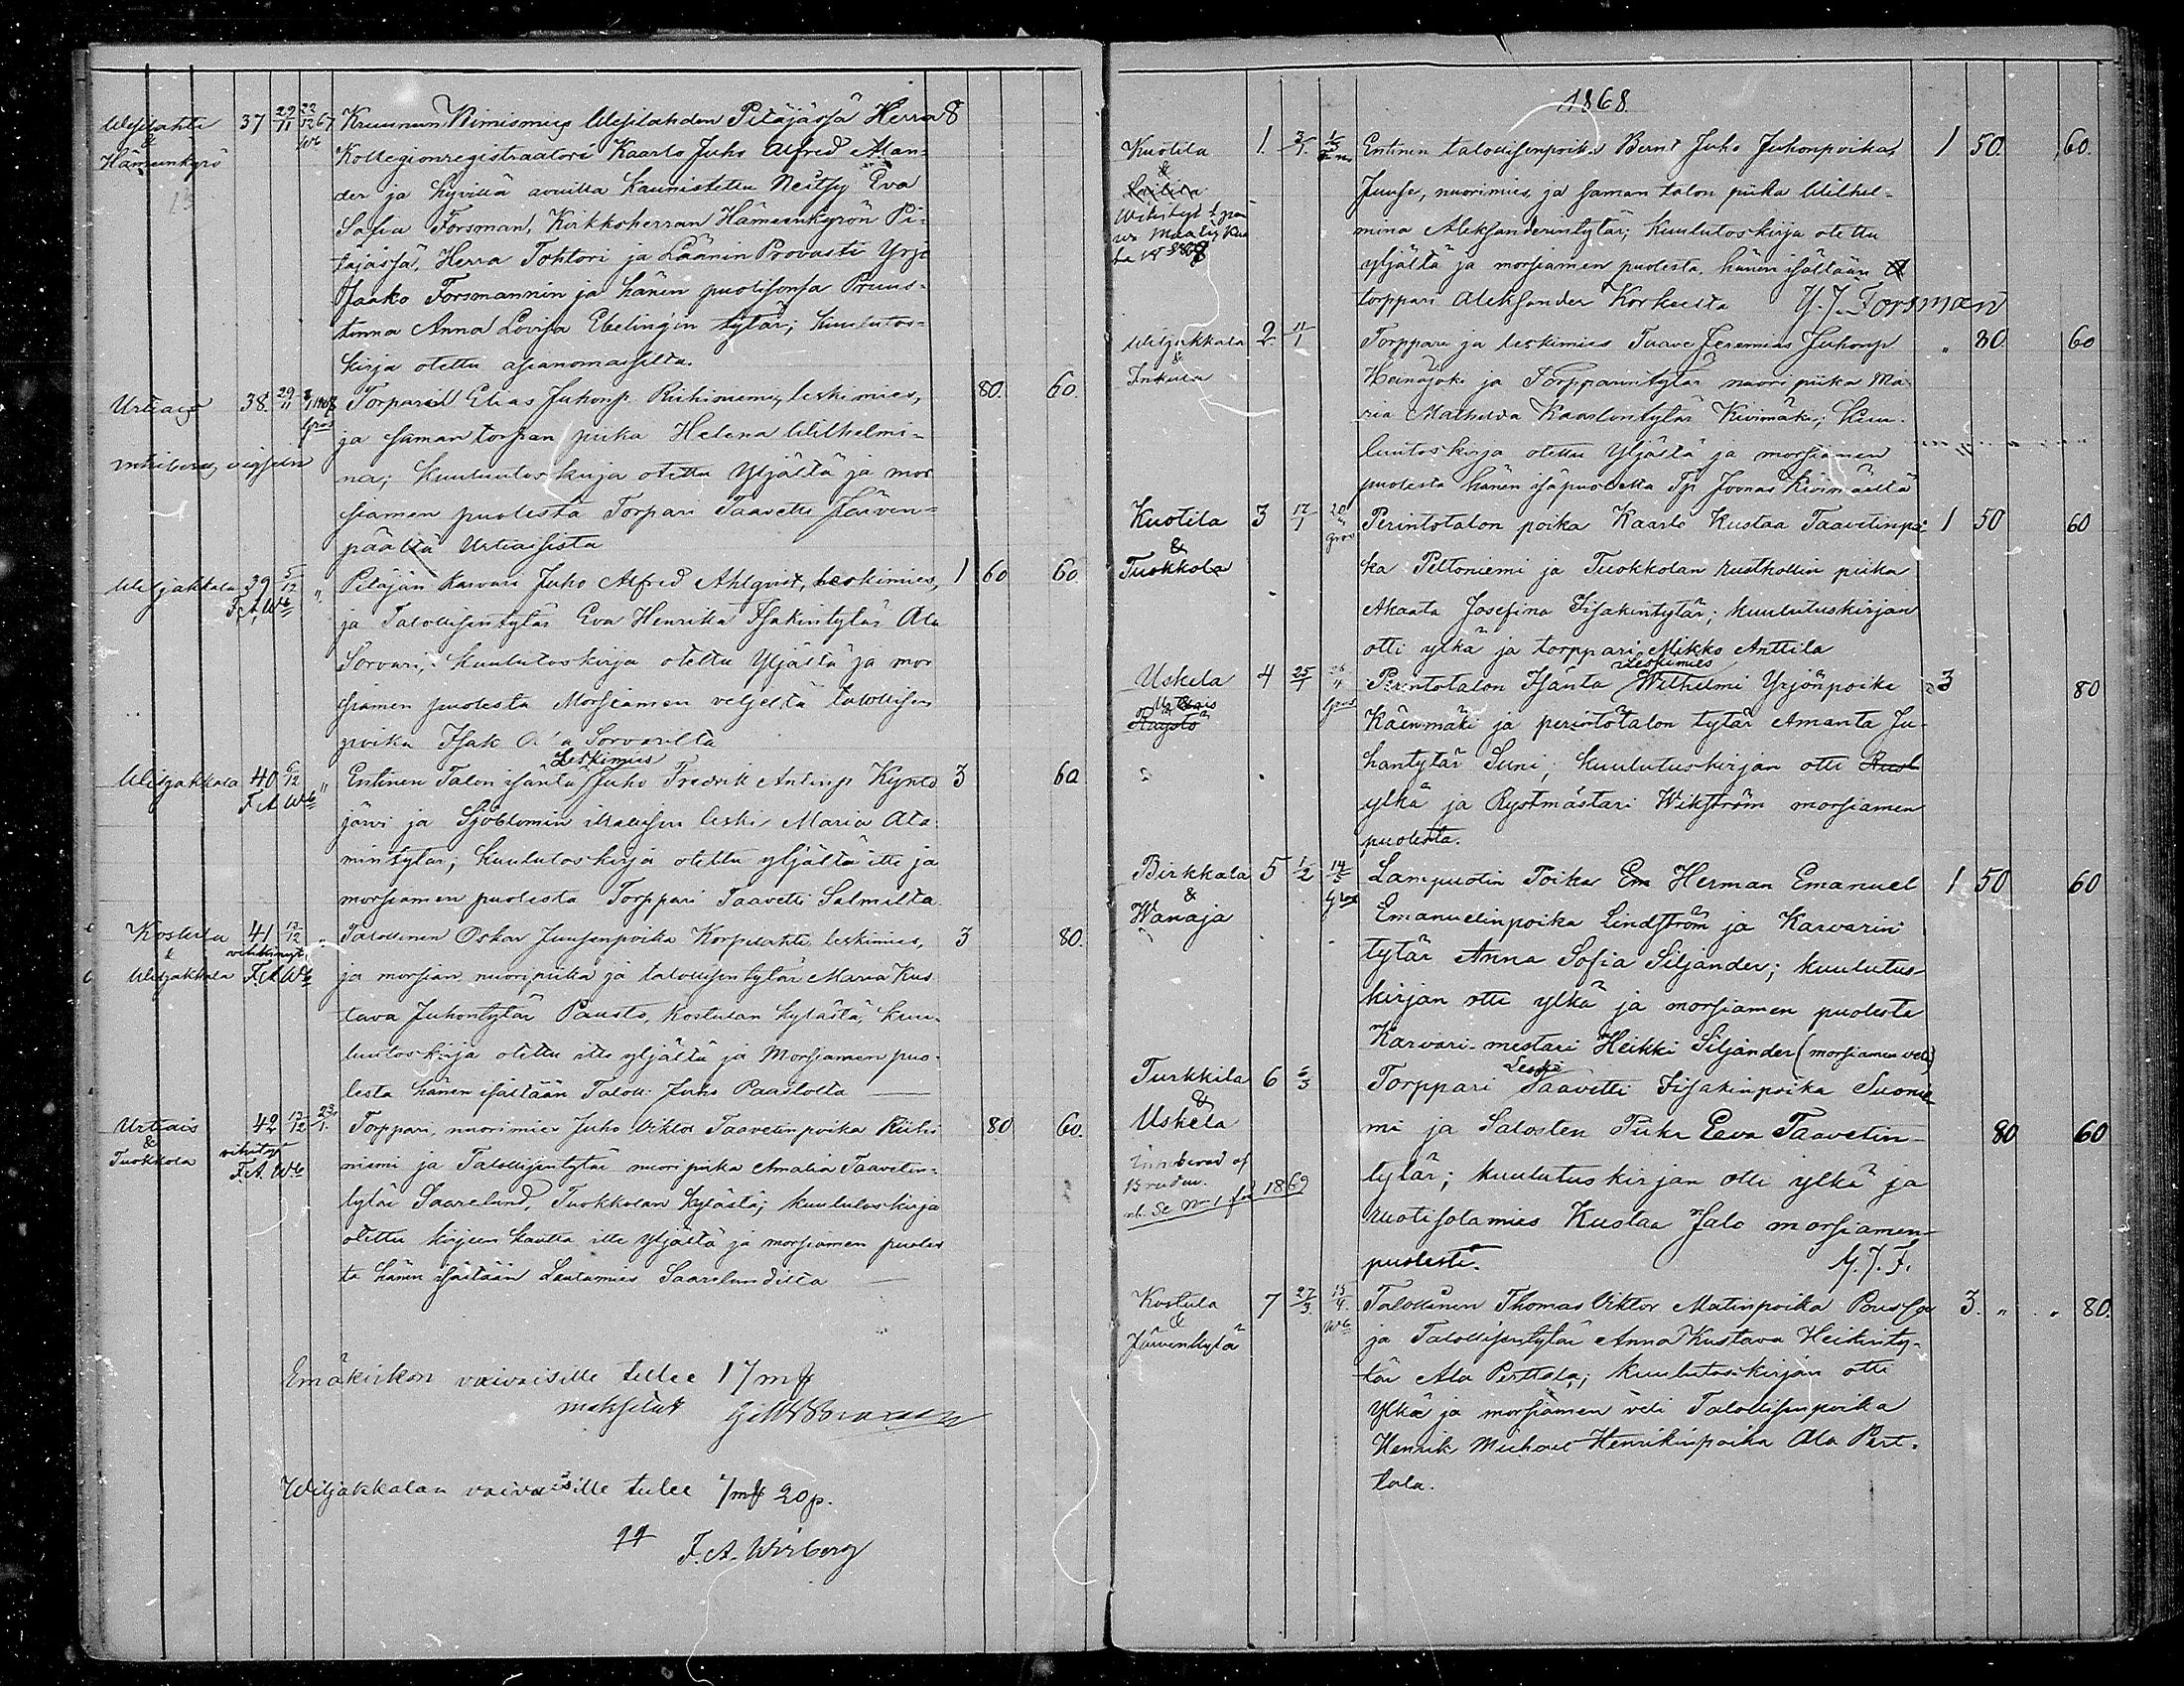 37 29/11 22/12 67 Kruunun Nimismies Wesilahden Pitäjässä Herra 8
Wesilahti
&
Hämeenkyrö
Kollegionregistraatori Kaarlo Juho Alfred Alan-
der ja hyvillä avuilla kaunistettu Neitsy Eva
Sofia Forsman, Kirkkoherran Hämeenkyrön Pi-
täjässä, Herra Tohtori ja Läänin Provasti Yrjö
Jaako Forsmannin ja hänen puolisonsa Pruus-
tinna Anna Lovisa Ebelingin tytär; kuulutos-
kirja otettu asianomasilta.
Urtiais 38. 29/11 Torpari Elias Juhonp. Riihiniemi, leskimies, 80. 60.
ja saman torpan piika Helena Wilhelmi-
na; kuulutoskirja otettu Yljältä ja mor
siamen puolesta Torpari Taavetti Järven-
päältä Urtiaisista
Wiljakkala 39 5/12 " Pitäjän Karvari Juho Alfred Ahlqvist, leskimies, 1 60 60
F.A.Wb
ja Talollisentytär Eva Henrika Isakintytär Ala
Sorvari; kuulutoskirja otettu Yljältä ja mor
siamen puolesta Morsiamen veljeltä talollisen
poika Isak Ala Sorvarilta
Leskimies
Wiljakkala 40 6/12 " Entinen Talon isäntä Juho Fredrik Antinp Kyrö 3 60
F.A Wb
järvi ja Sjöblomin leski Maria Ata
mintytar; kuulutoskirja otettu yljältä itte ja
morsiamen puolesta Torppari Taavetti Salmelta
Kostula 41 13/12 Talollinen Oskar Juusenpoika Korpilahti leskimies, 3 80.
&
Wiljakkala F.A Wb ja morsian nuori piika ja talollisen tytär Maria Kus
tava Juhontytär Pausto, Kostulan kylästä, kuu-
luutoskirja otettu itte yljältä ja Morsiamen puo-
lesta hänen isältään Talolli Juho Paastolta
Urtiais 42 17/12 23/1. Torppari, nuorimies Juho Viktor Taavetinpoika Riihi 80 60.
&
Tuokkola vihityt
F.A. Wb
niemi ja Talollisentytär nuori piika Amalia Taavetin-
tytär Saarelund, Tuokkolan kylästä; kuulutoskirja
otettu kirjeen kautta itte yljältä ja morsiamen puoles
ta hänen isältään Lautamies Saarelundilta
Emäkirkon vaivaisille tulee 17 mk
maksetut
Wiljakkalan vaivaisille tulee 7 mk 20 p.
F. A. Wirberg
1868.
Kuotila 1. 3/1. Entinen talollisenpoika Bernt Juho Juhonpoika 1 50. 60.
&
Juuse, nuorimies ja saman talon piika Wilhel-
mina Aleksanderintytär; Kuulutoskirja otettu
yljältä ja morsiamen puolesta hänen isältään
torppari Aleksander Korkeelta Y. J. Forsman
Wiljakkala 2. 11/1 Torppari ja leskimies Taave Jeremias Juhonp " 80 60
&
Inkula
Heinäjoki ja Torpparintytär nuori piika Ma-
ria Mathilda Kaarlontytär Kivimäki; Kuu-
luutoskirja otettu Yljältä ja morsiamen
puolesta hänen isäpuolelta Tp Joonas Kivimäeltä
Kuotila 3 17/1 20/" Perintotalon poika Kaarlo Kustaa Taavetinpoi 1 50 60
&
Tuokkola
ka Peltoniemi ja Tuokkolan rustkollin piika
Akaata Josefina Iisakintytär; kuulutuskirjan
otti ylkä ja torppari Mikko Anttila
Leskimies
Uskela 4 25/1 Perintotalon Isäntä Wilhelmi Yrjönpoika 3 80
Urtiais
Käenmäki ja perintötalon tytär Amanta Ju-
hantytär Suni; kuulutuskirjan otti
ylkä ja Rystmästari Wikström morsiamen
puolesta.
Birkkala 5 1/2 14/5 Lampuotin Poika Em Herman Emanuel 1 50 60
&
Wanaja
Emanuelinpoika Lindström ja Karvarin
tytär Anna Sofia Siljander; kuulutus-
kirjan otti ylkä ja morsiamen puolesta
Karvari-mestari Heikki Siljander (morsiamen veli)
Leski
Turkkila 6 6/3 Torppari Taavetti Iisakinpoika Suonie
&
Uskela
mi ja Salosten Piika Eeva Taavetin- 80 60
tytär; kuulutuskirjan otti ylkä ja
af
Bruden.
Se No 1 för 1869
ruotisotamies Kustaa Jalo morsiamen
puolesti. Y. J. F.
Kostula 7 27/3. 13/4. Talollinen Thomas Viktor Matinpoika Pousa 3. " " 80.
&
Järvenkylä
ja Talollisentytär Anna Kustava Heikinty-
tär Ala Perttala; kuulutoskirjan otti
Ylkä ja morsiamen veli Talollisenpoika
Henrik Michael Henrikinpoika Ala Pert-
tala.